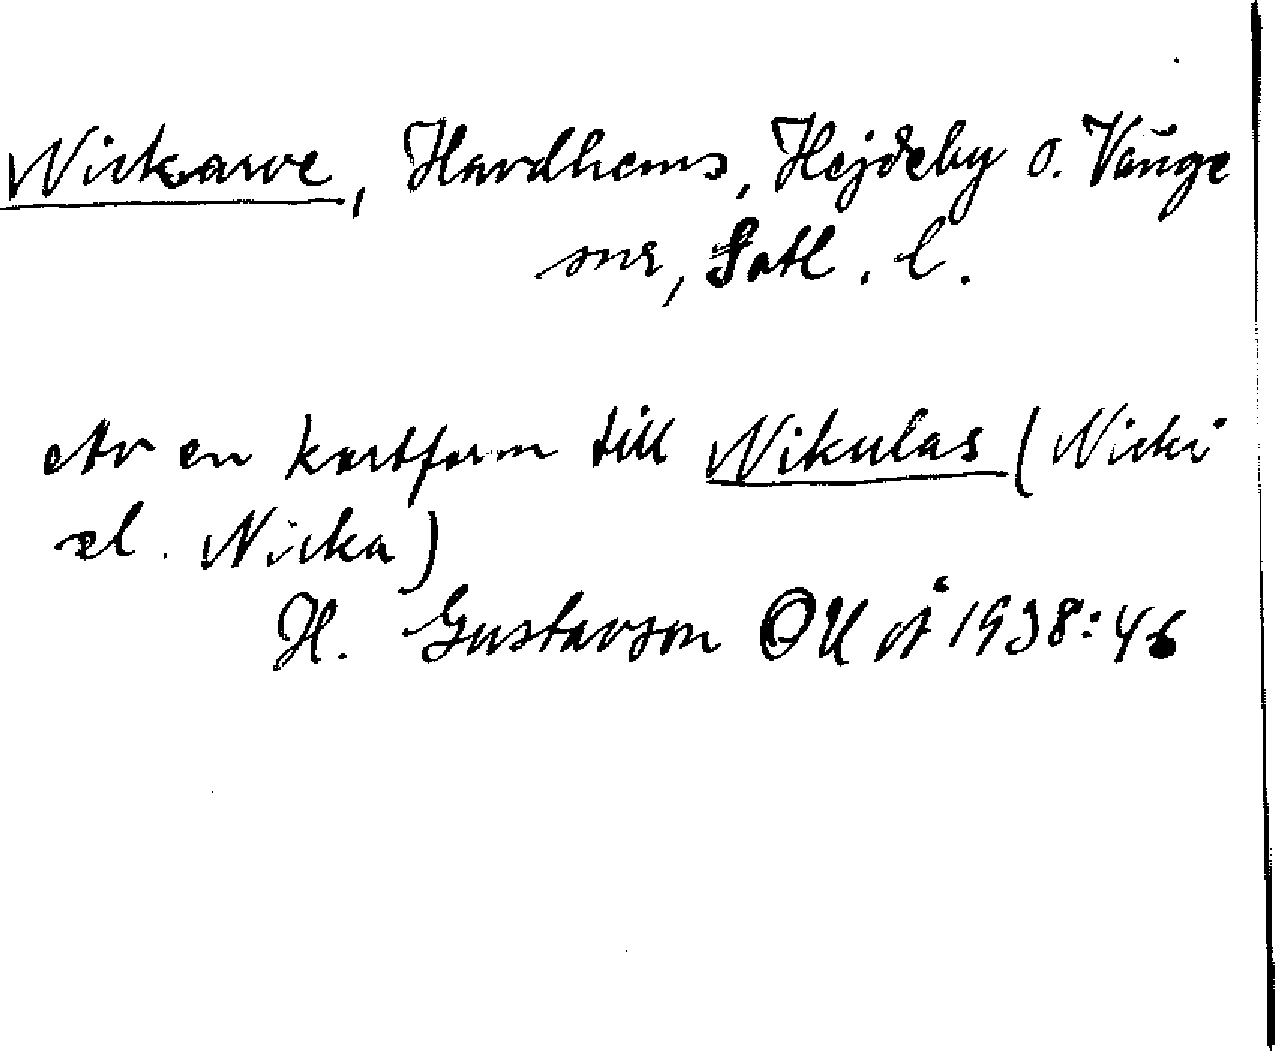 Nickarve, Hardhems, Hejdeby o. Vänge
snr, Gotl. l.
Av en kortform till Nikulas (Nicki
el. Nicka)
H. Gustavson OUÅ 1938:46